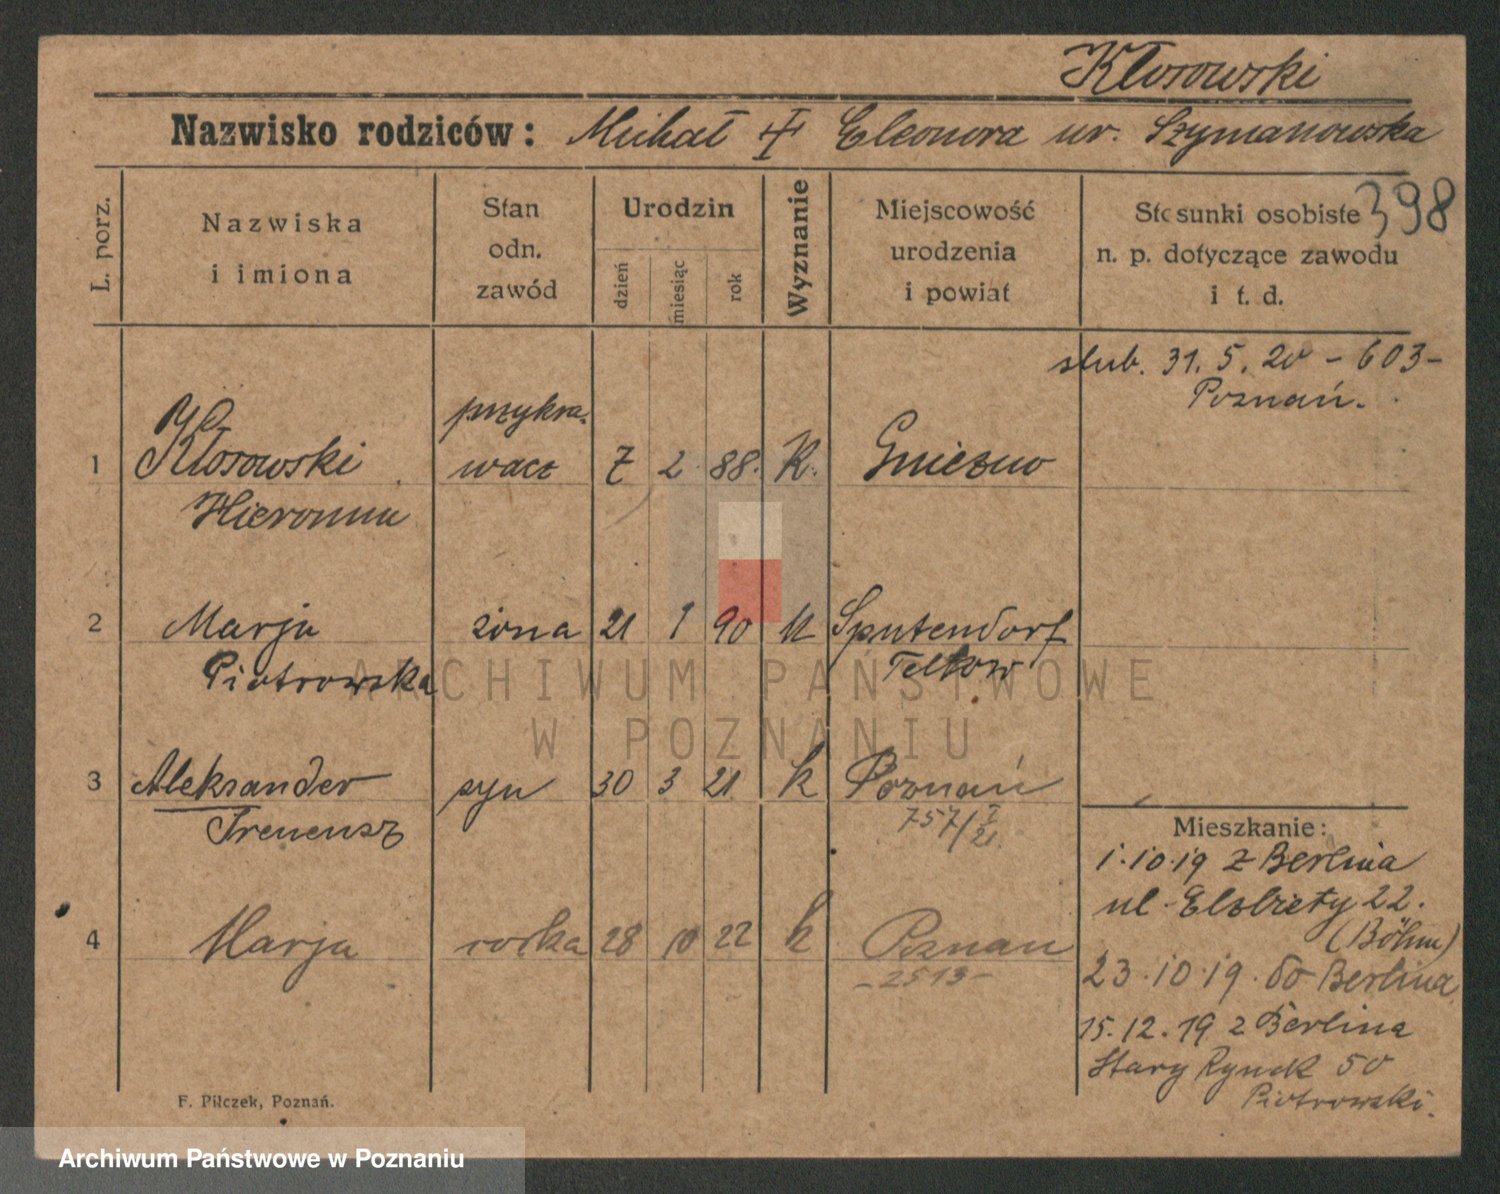 Kłosowski
Nazwisko rodziców: Michał Eleonora ur. Szymanowska
398
L. porz.
Nazwiska
i imiona
Stan
odn.
zawód
Urodzin
dzień
miesiąc
rok
Wyznanie
Miejscowość
urodzenia
i powiat
Stosunki osobiste
n. p. dotyczące zawodu
i t. d.
ślub. 31. 5. 20 - 603-
Poznań.
przykra-
1 Kłosowski wacz 7 2 88. K. Gniezno
Hieronim
2 Marja żona 21 1 90 K Sputendorf
Piotrowska Teltow
3 Aleksander syn 30 3 21 k Poznań
Ireneusz 757/I 21.
4 Marja córka 28 10 22 k Poznań
- 2513 -
Mieszkanie:
1.10.19 z Berlina
ul. Elżbiety 22.
(Böhm)
23.10.19. do Berlina
15.12.19 z Berlina
Stary Rynek 50
Piotrowski.
F. Pilczek, Poznań.
ARCHIWUM PAŃSTWOWE
W POZNANIU
Archiwum Państwowe w Poznaniu